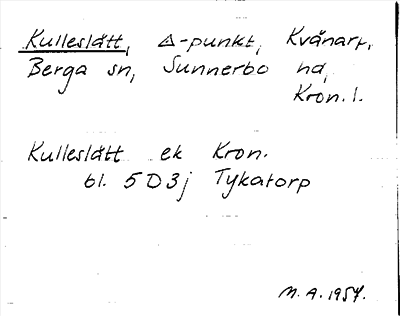 Kulleslätt, △-punkt, Kvånarp,
Berga sn, Sunnerbo hd,
Kron. l.
Kulleslätt ek Kron.
bl. 5D3j Tykatorp
M. A. 1957.